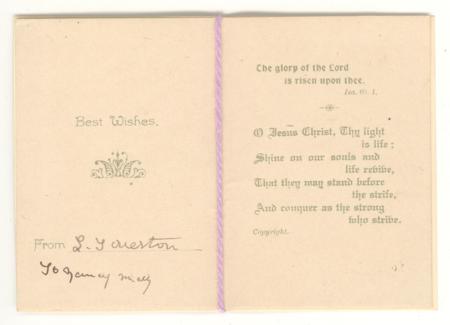 Best Wishes.
From L.
To Nancy
The glory of the Lord
is risen upon thee.
Isa. 60. 1.
O Jesus Christ, Thy light
is life;
Shine on our souls and
life revive,
That they may stand before
the strife,
And conquer as the strong
who strive.
Copyright.